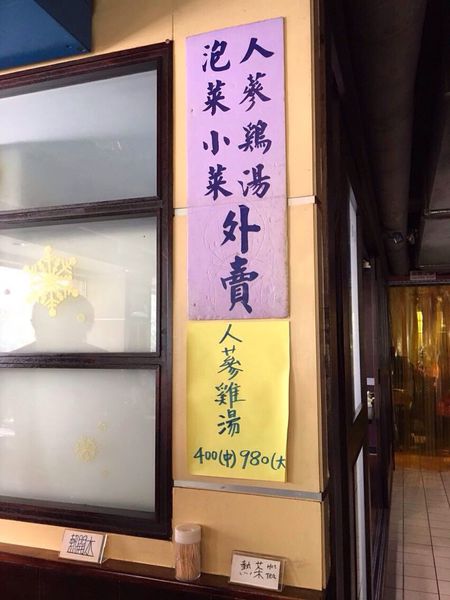 人蔘鷄湯
泡菜小菜
外賣
人蔘雞湯
400(中) 980(大
熱開水
熱菜